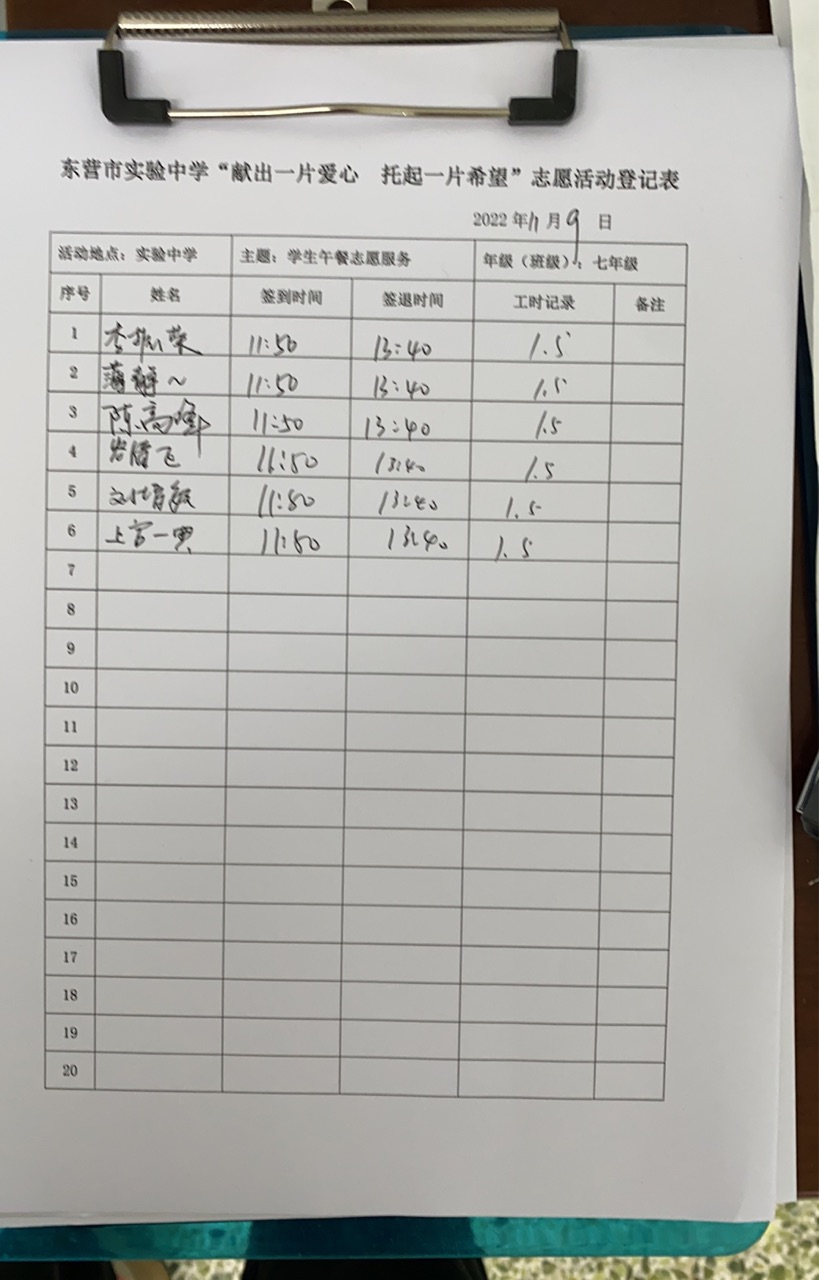 东营市实验中学“献出一片爱心 托起一片希望”志愿活动登记表
2022 年 11 月 9 日
活动地点：实验中学 主题：学生午餐志愿服务 年级（班级）：七年级
序号 姓名 签到时间 签退时间 工时记录 备注
1 李振荣 11:50 13:40 1.5
2 薄静~ 11:50 13:40 1.5
3 陈高峰 11:50 13:40 1.5
4 岩腾飞 11:50 13:40 1.5
5 11:50 13:40 1.5
6 上官一 11:50 13:40 1.5
7
8
9
10
11
12
13
14
15
16
17
18
19
20